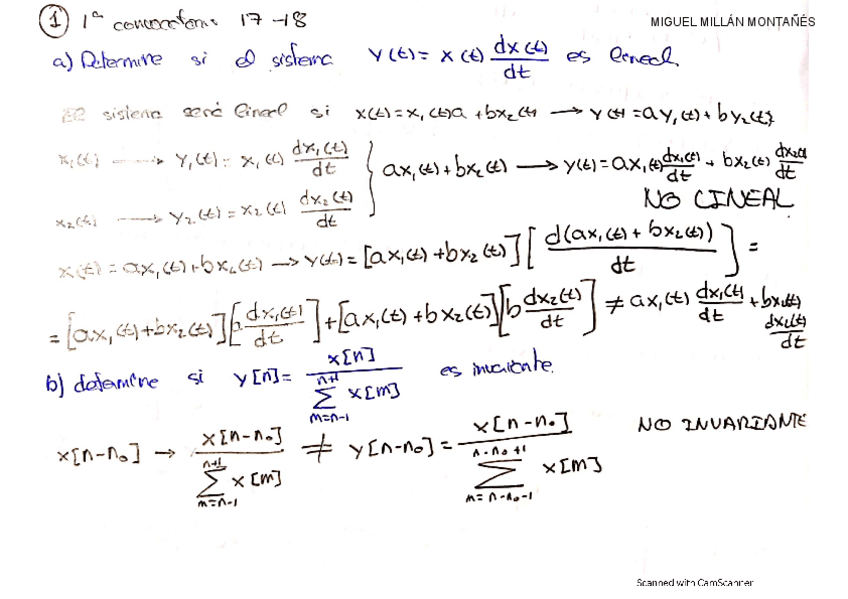 ① 1ª convocatoria 17-18
MIGUEL MILLÁN MONTAÑÉS
a) Determine si el sistema y(t) = x(t) dx(t)/dt es lineal.
El sistema será lineal si x(t) = x₁(t)a + bx₂(t) → y(t) = ay₁(t) + by₂(t)
x₁(t) → y₁(t) = x₁(t) dx₁(t)/dt
x₂(t) → y₂(t) = x₂(t) dx₂(t)/dt
} ax₁(t) + bx₂(t) → y(t) = ax₁(t) dx₁(t)/dt + bx₂(t) dx₂(t)/dt
NO LINEAL
x(t) = ax₁(t) + bx₂(t) → y(t) = [ax₁(t) + bx₂(t)] [d(ax₁(t) + bx₂(t))/dt] =
= [ax₁(t) + bx₂(t)] [a dx₁(t)/dt] + [ax₁(t) + bx₂(t)] [b dx₂(t)/dt] ≠ ax₁(t) dx₁(t)/dt + bx₂(t) dx₂(t)/dt
b) determine si y[n] = x[n] / ∑_{m=n-1}^{n+1} x[m] es invariante.
x[n-n₀] → x[n-n₀] / ∑_{m=n-1}^{n+1} x[m] ≠ y[n-n₀] = x[n-n₀] / ∑_{m=n-n₀-1}^{n-n₀+1} x[m] NO INVARIANTE
Scanned with CamScanner